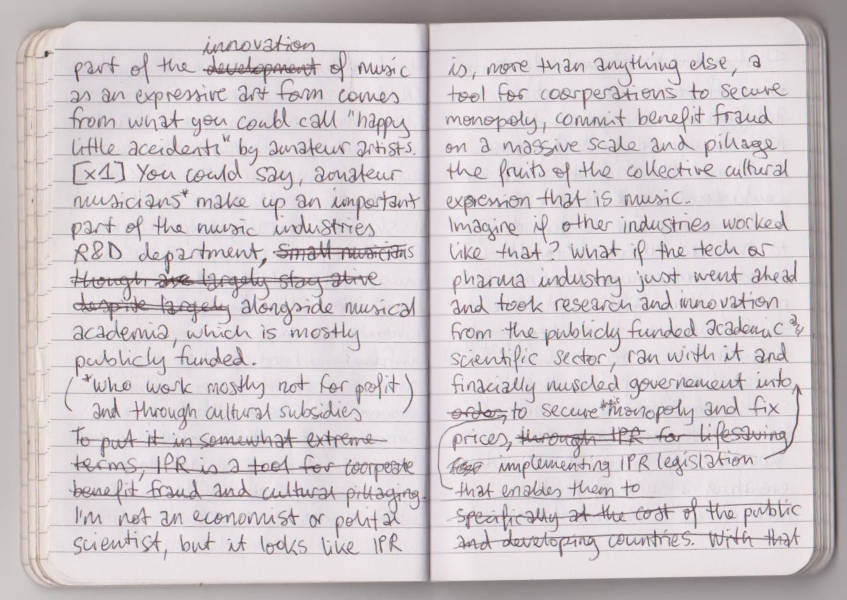 innovation
part of the development of music
as an expressive art form comes
from what you could call "happy
little accidents" by amateur artists.
[x1] You could say, amateur
musicians* make up an important
part of the music industries
R&D department, small musicians
though are largely stay alive
despite largely alongside musical
academia, which is mostly
publicly funded.
(*who work mostly not for profit)
and through cultural subsidies
To put it in somewhat extreme
terms, IPR is a tool for coorpeate
benefit fraud and cultural pillaging.
I'm not an economist or polital
scientist, but it looks like IPR
is, more than anything else, a
tool for coorperations to secure
monopoly, commit benefit fraud
on a massive scale and pillage
the fruits of the collective cultural
expression that is music.
Imagine if other industries worked
like that? What if the tech or
pharma industry just went ahead
and took research and innovation
from the publicly funded academic
scientific sector, ran with it and
finacially muscled governement into
order, to secure monopoly and fix
prices, through IPR for lifesaving
implementing IPR legislation
that enables them to
specifically at the cost of the public
and developing countries. With that